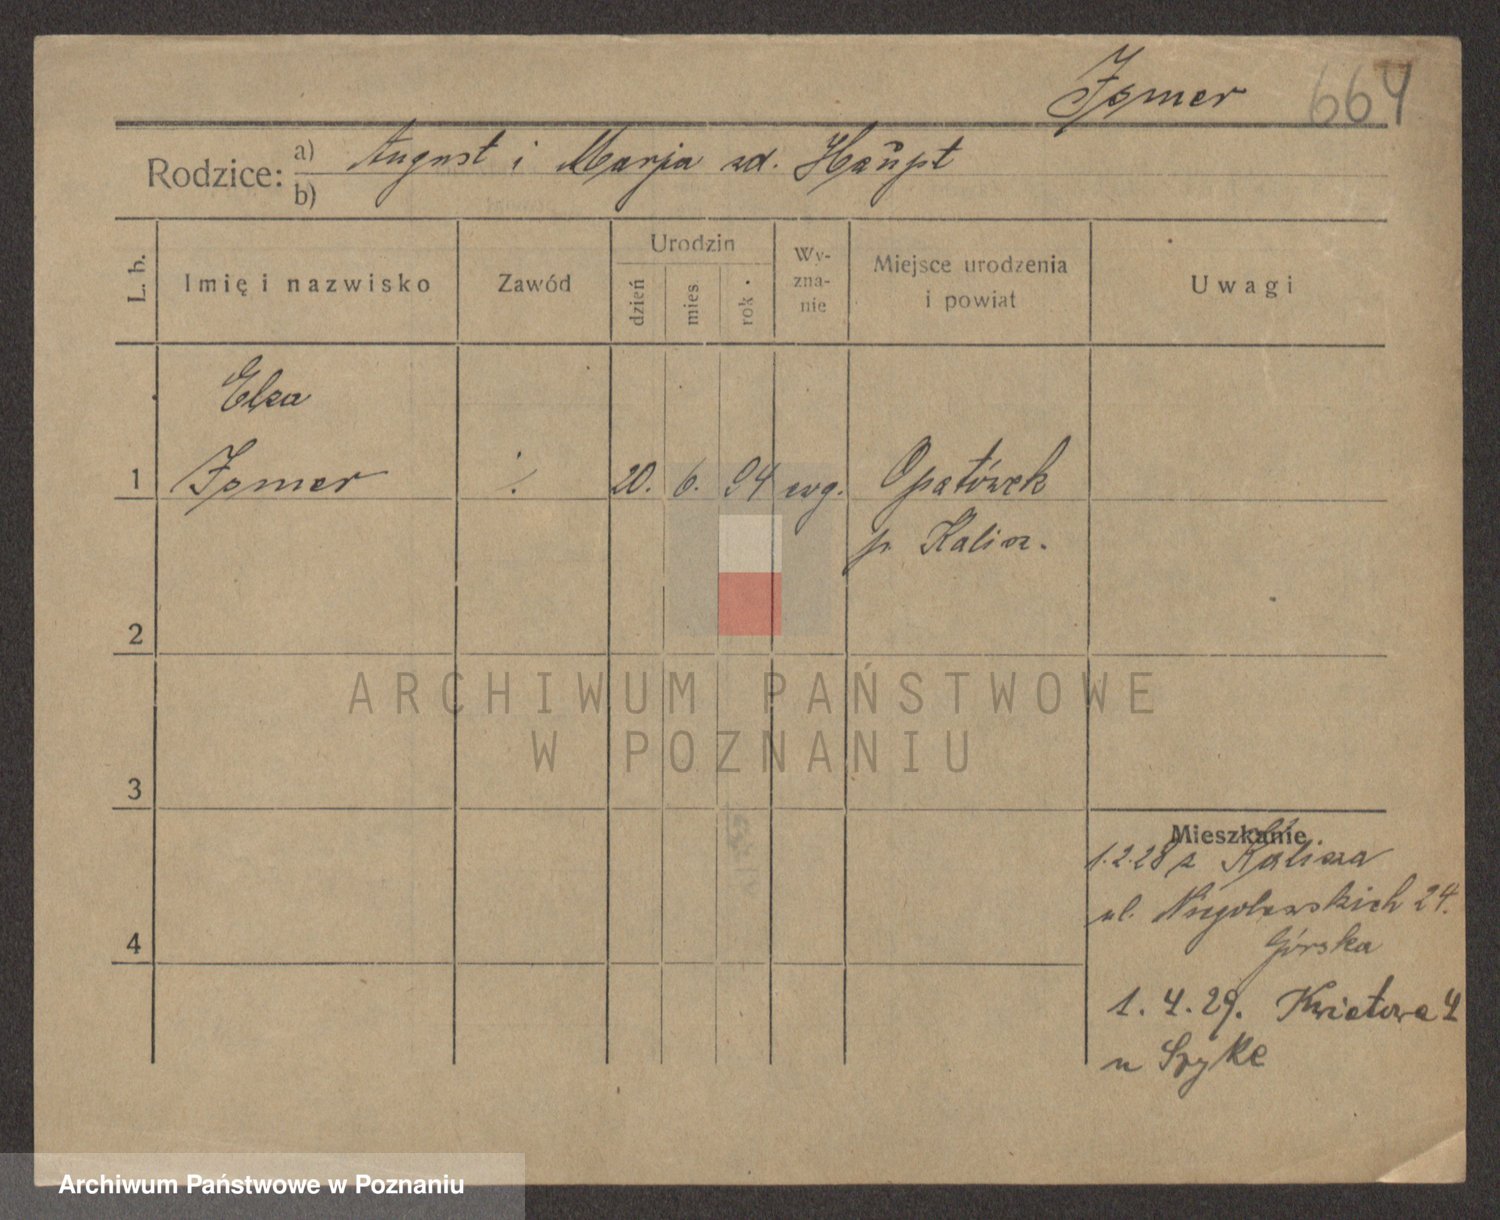 Jomer 664
Rodzice: a) August i Marja zd. Haupt
b)
L. b.
Imię i nazwisko
Zawód
Urodzin
dzień
mies.
rok
Wy-
zna-
nie
Miejsce urodzenia
i powiat
Uwagi
Elza
1 Jomer ./. 20. 6. 94 ewg. Opatówek
p. Kalisz.
2
3
4
Mieszkanie
1.2.28 z Kalisza
ul. 24.
Górska
1. 4. 29. Kwiatowa 4
u Szyke
ARCHIWUM PAŃSTWOWE
W POZNANIU
Archiwum Państwowe w Poznaniu